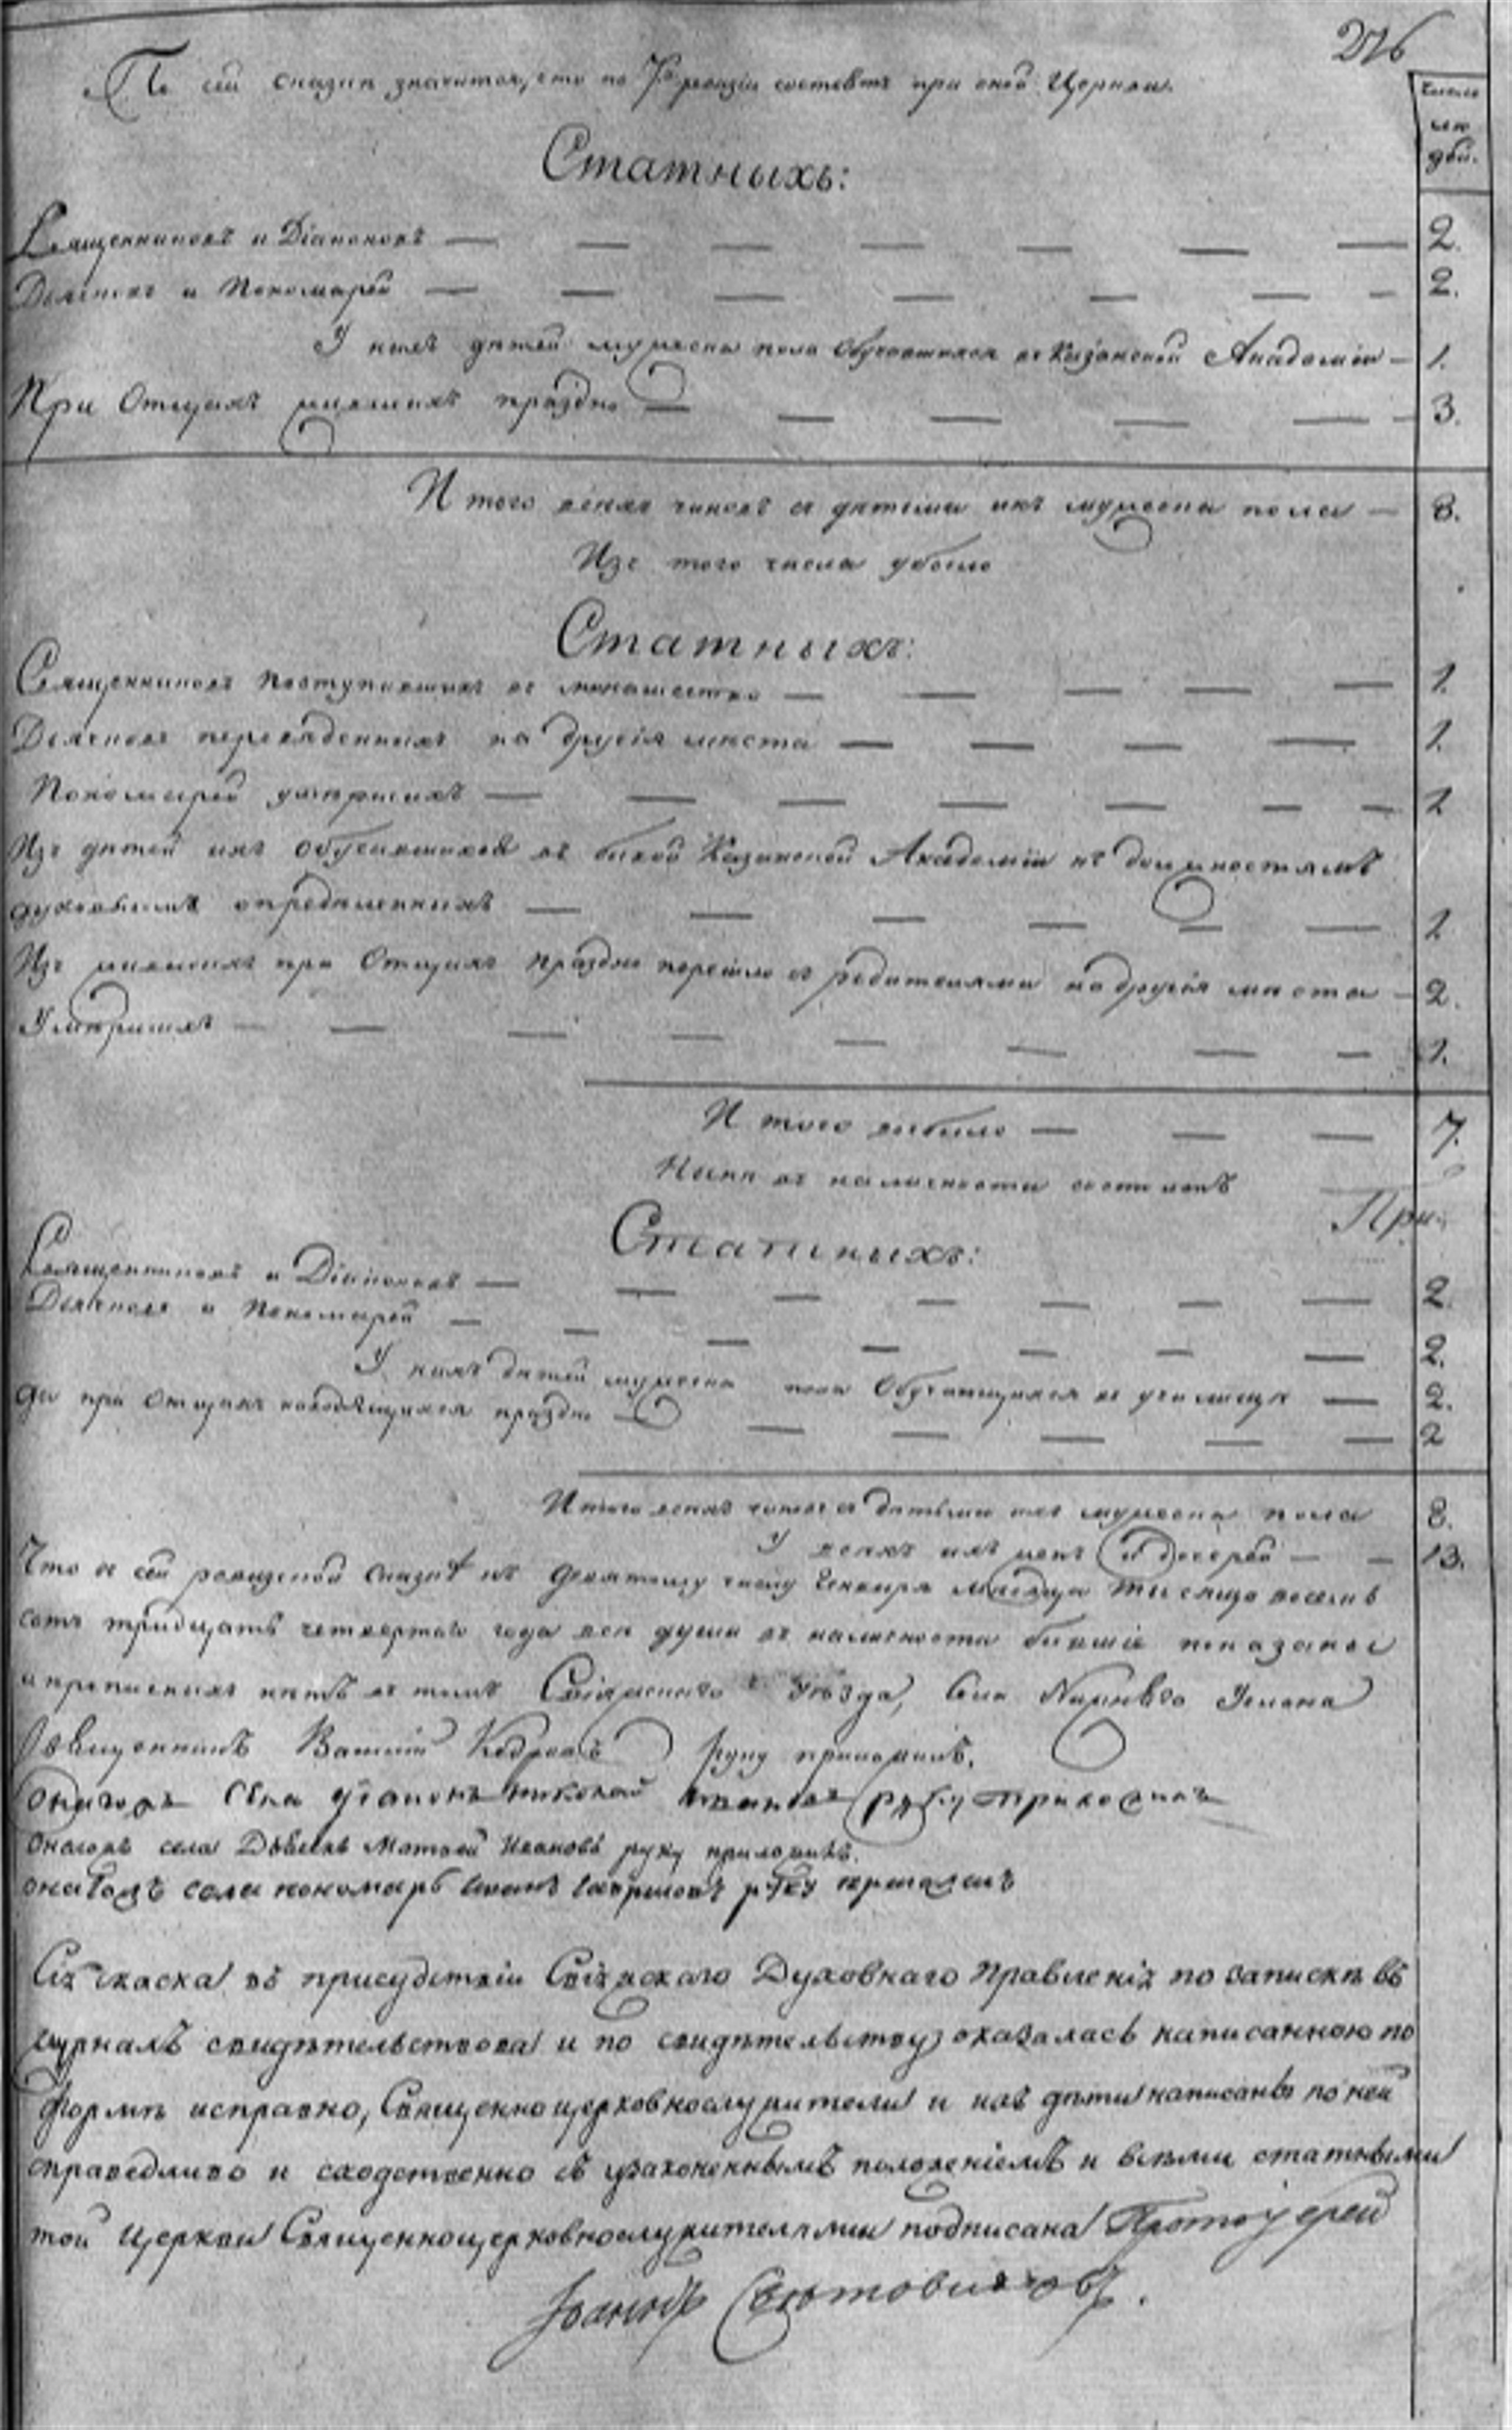 По сей сказки значится, что по 7й ревизіи состоитъ при оной Церкви.
226
Число
душ.
Статныхъ:
Священниковъ и Діаконовъ — 2.
Дьячковъ и Пономарей — 2.
У нихъ дѣтей мужеска пола обучавшихся въ Казанской Академіи — 1.
При Отцахъ жившихъ праздно — 3.
И того всѣхъ чиновъ съ дѣтьми ихъ мужеска пола — 8.
Изъ того числа убыло
Статныхъ:
Священниковъ поступившихъ въ монашество — 1.
Дьячковъ переведенныхъ на другія мѣста — 1.
Пономарей умершихъ — 1
Изъ дѣтей ихъ обучавшихся въ бывой Казанской Академіи къ должностямъ
духовнымъ опредѣленныхъ — 1
Изъ жившихъ при Отцахъ праздно перешло съ родителями на другія мѣста — 2.
Умершихъ — 1.
И того выбыло — 7.
Нынѣ въ наличности состоитъ
При:
Статныхъ:
Священниковъ и Діаконовъ — 2.
Дьячковъ и Пономарей — 2.
У нихъ дѣтей мужеска пола Обучающихся въ училищѣ — 2.
да при Отцахъ находящихся праздно — 2
Итого всѣхъ чиновъ съ дѣтьми ихъ мужеска пола 8.
У всѣхъ ихъ женъ и дочерей — 13.
Что въ сей ревизской сказкѣ къ девятому числу Генваря мѣсяца тысяща восемь
сотъ тридцать четвертаго года всѣ души въ наличности бывшіе показаны
и прописныхъ нѣтъ въ томъ Свіяжскаго Уѣзда, села Нижняго Услона
Священникъ Василій Кедровъ руку приложилъ.
Онагожъ Села діаконъ Николай Ивановъ руку приложилъ
Онагожъ села Дьячекъ Матвей Ивановъ руку приложилъ.
онагожъ села пономарь Иванъ Гавриловъ руку приложилъ
Сія скаска въ присудствіи Свіяжскаго Духовнаго Правленія по запискѣ въ
журналъ свидѣтельствова и по свидѣтельству оказалась написанною по
формѣ исправно, Священноцерковнослужители и ихъ дѣти написаны по ней
справедливо и сходственно съ узаконеннымъ положеніемъ и всѣми статными
той Церкви Священноцерковнослужителями подписана Протоіерей
Іоаннъ